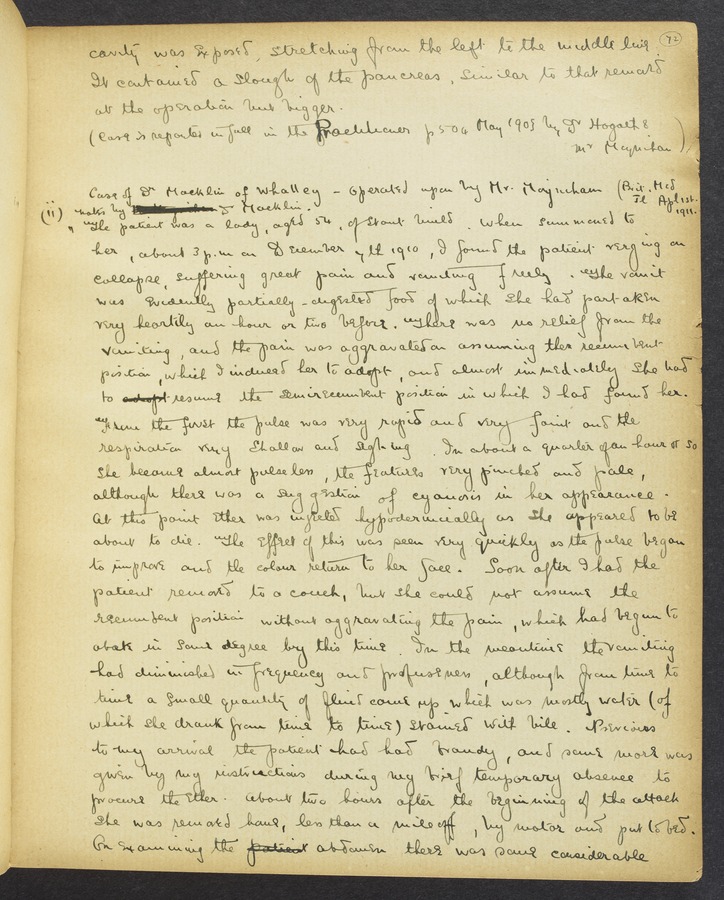 72
cavity was exposed, stretching from the left to the middle line.
It contained a slough of the pancreas, similar to that removed
at the operation but bigger.
(Case is reported in full in the Practitioner p 504 May 1909 by Dr Hogarth &
Mr Moynihan)
Case of Dr Macklin of Whalley - operated upon by Mr. Moynihan (Brit. Med
Jl Apl 1st.
1911.
(ii) notes by Dr Macklin.
"The patient was a lady, aged 54, of stout build. When summoned to
her, about 3 p.m on December 7th 1910, I found the patient verging on
collapse, suffering great pain and vomiting freely. "The vomit
was evidently partially-digested food of which she had partaken
very heartily an hour or two before. "There was no relief from the
vomiting, and the pain was aggravated on assuming the recumbent
position, which I induced her to adopt, and almost immediately she had
to adopt resume the semirecumbent position in which I had found her.
"From the first the pulse was very rapid and very faint and the
respiration very shallow and sighing. In about a quarter of an hour or so
she became almost pulseless, the features very pinched and pale,
although there was a suggestion of cyanosis in her appearance.
At this point Ether was injected hypodermically as she appeared to be
about to die. "The effect of this was seen very quickly as the pulse began
to improve and the colour return to her face. Soon after I had the
patient removed to a couch, but she could not assume the
recumbent position without aggravating the pain, which had begun to
abate in some degree by this time. In the meantime the vomiting
had diminished in frequency and profuseness, although from time to
time a small quantity of fluid came up which was mostly water (of
which she drank from time to time) stained with bile. Previous
to my arrival the patient had had brandy, and some more was
given by my instructions during my brief temporary absence to
procure the Ether. About two hours after the beginning of the attack
she was removed home, less than a mile off, by motor and put to bed.
On examining the patient abdomen there was some considerable